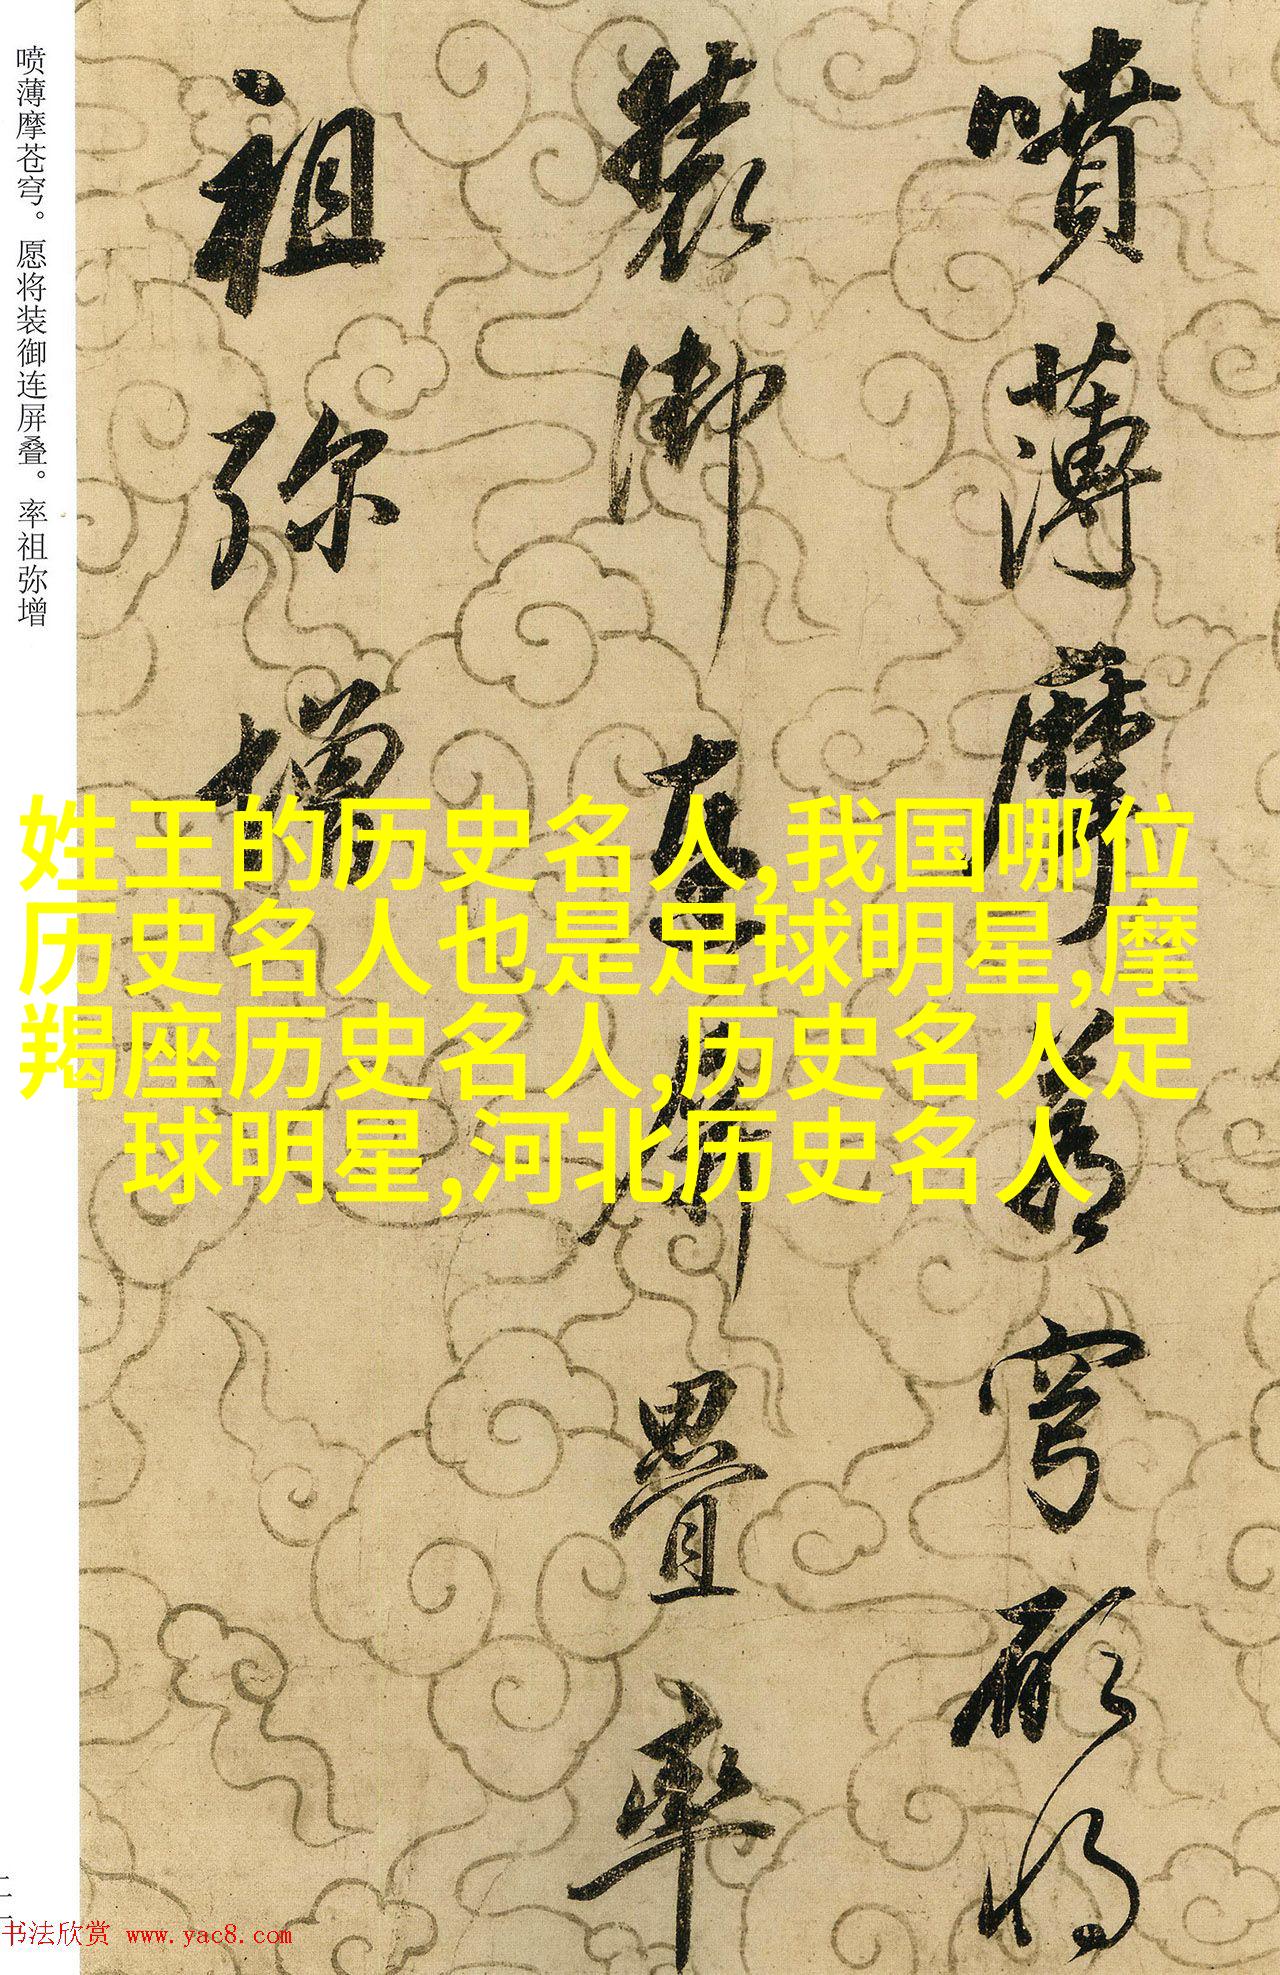 喷薄摩苍穹。愿将装御连屏叠。率祖弥增
噴薄摩蒼穹願將
裝御連屏疊率
祖弥增
姓王的历史名人,我国哪位
历史名人也是足球明星,摩
羯座历史名人,历史名人足
球明星,河北历史名人
书法欣赏 www.yac8.com